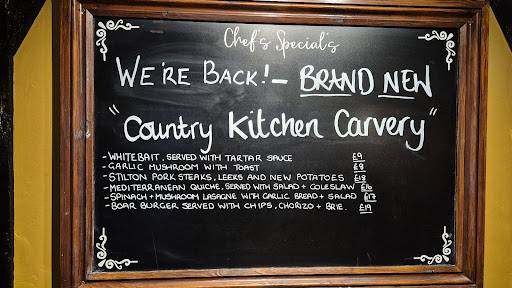 Chef's Special's
WE'RE BACK! - BRAND NEW
"Country Kitchen Carvery"
- WHITEBAIT, SERVED WITH TARTAR SAUCE £9
- GARLIC MUSHROOM WITH TOAST £8
- STILTON PORK STEAKS, LEEKS AND NEW POTATOES £18
- MEDITERRANEAN QUICHE, SERVED WITH SALAD + COLESLAW £16
- SPINACH + MUSHROOM LASAGNE WITH GARLIC BREAD + SALAD £17
- BOAR BURGER SERVED WITH CHIPS, CHORIZO + BRIE. £19